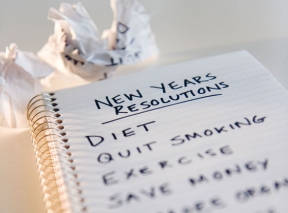 NEW YEARS
RESOLUTIONS
DIET
QUIT SMOKING
EXERCISE
SAVE MONEY
MORE ORGAN